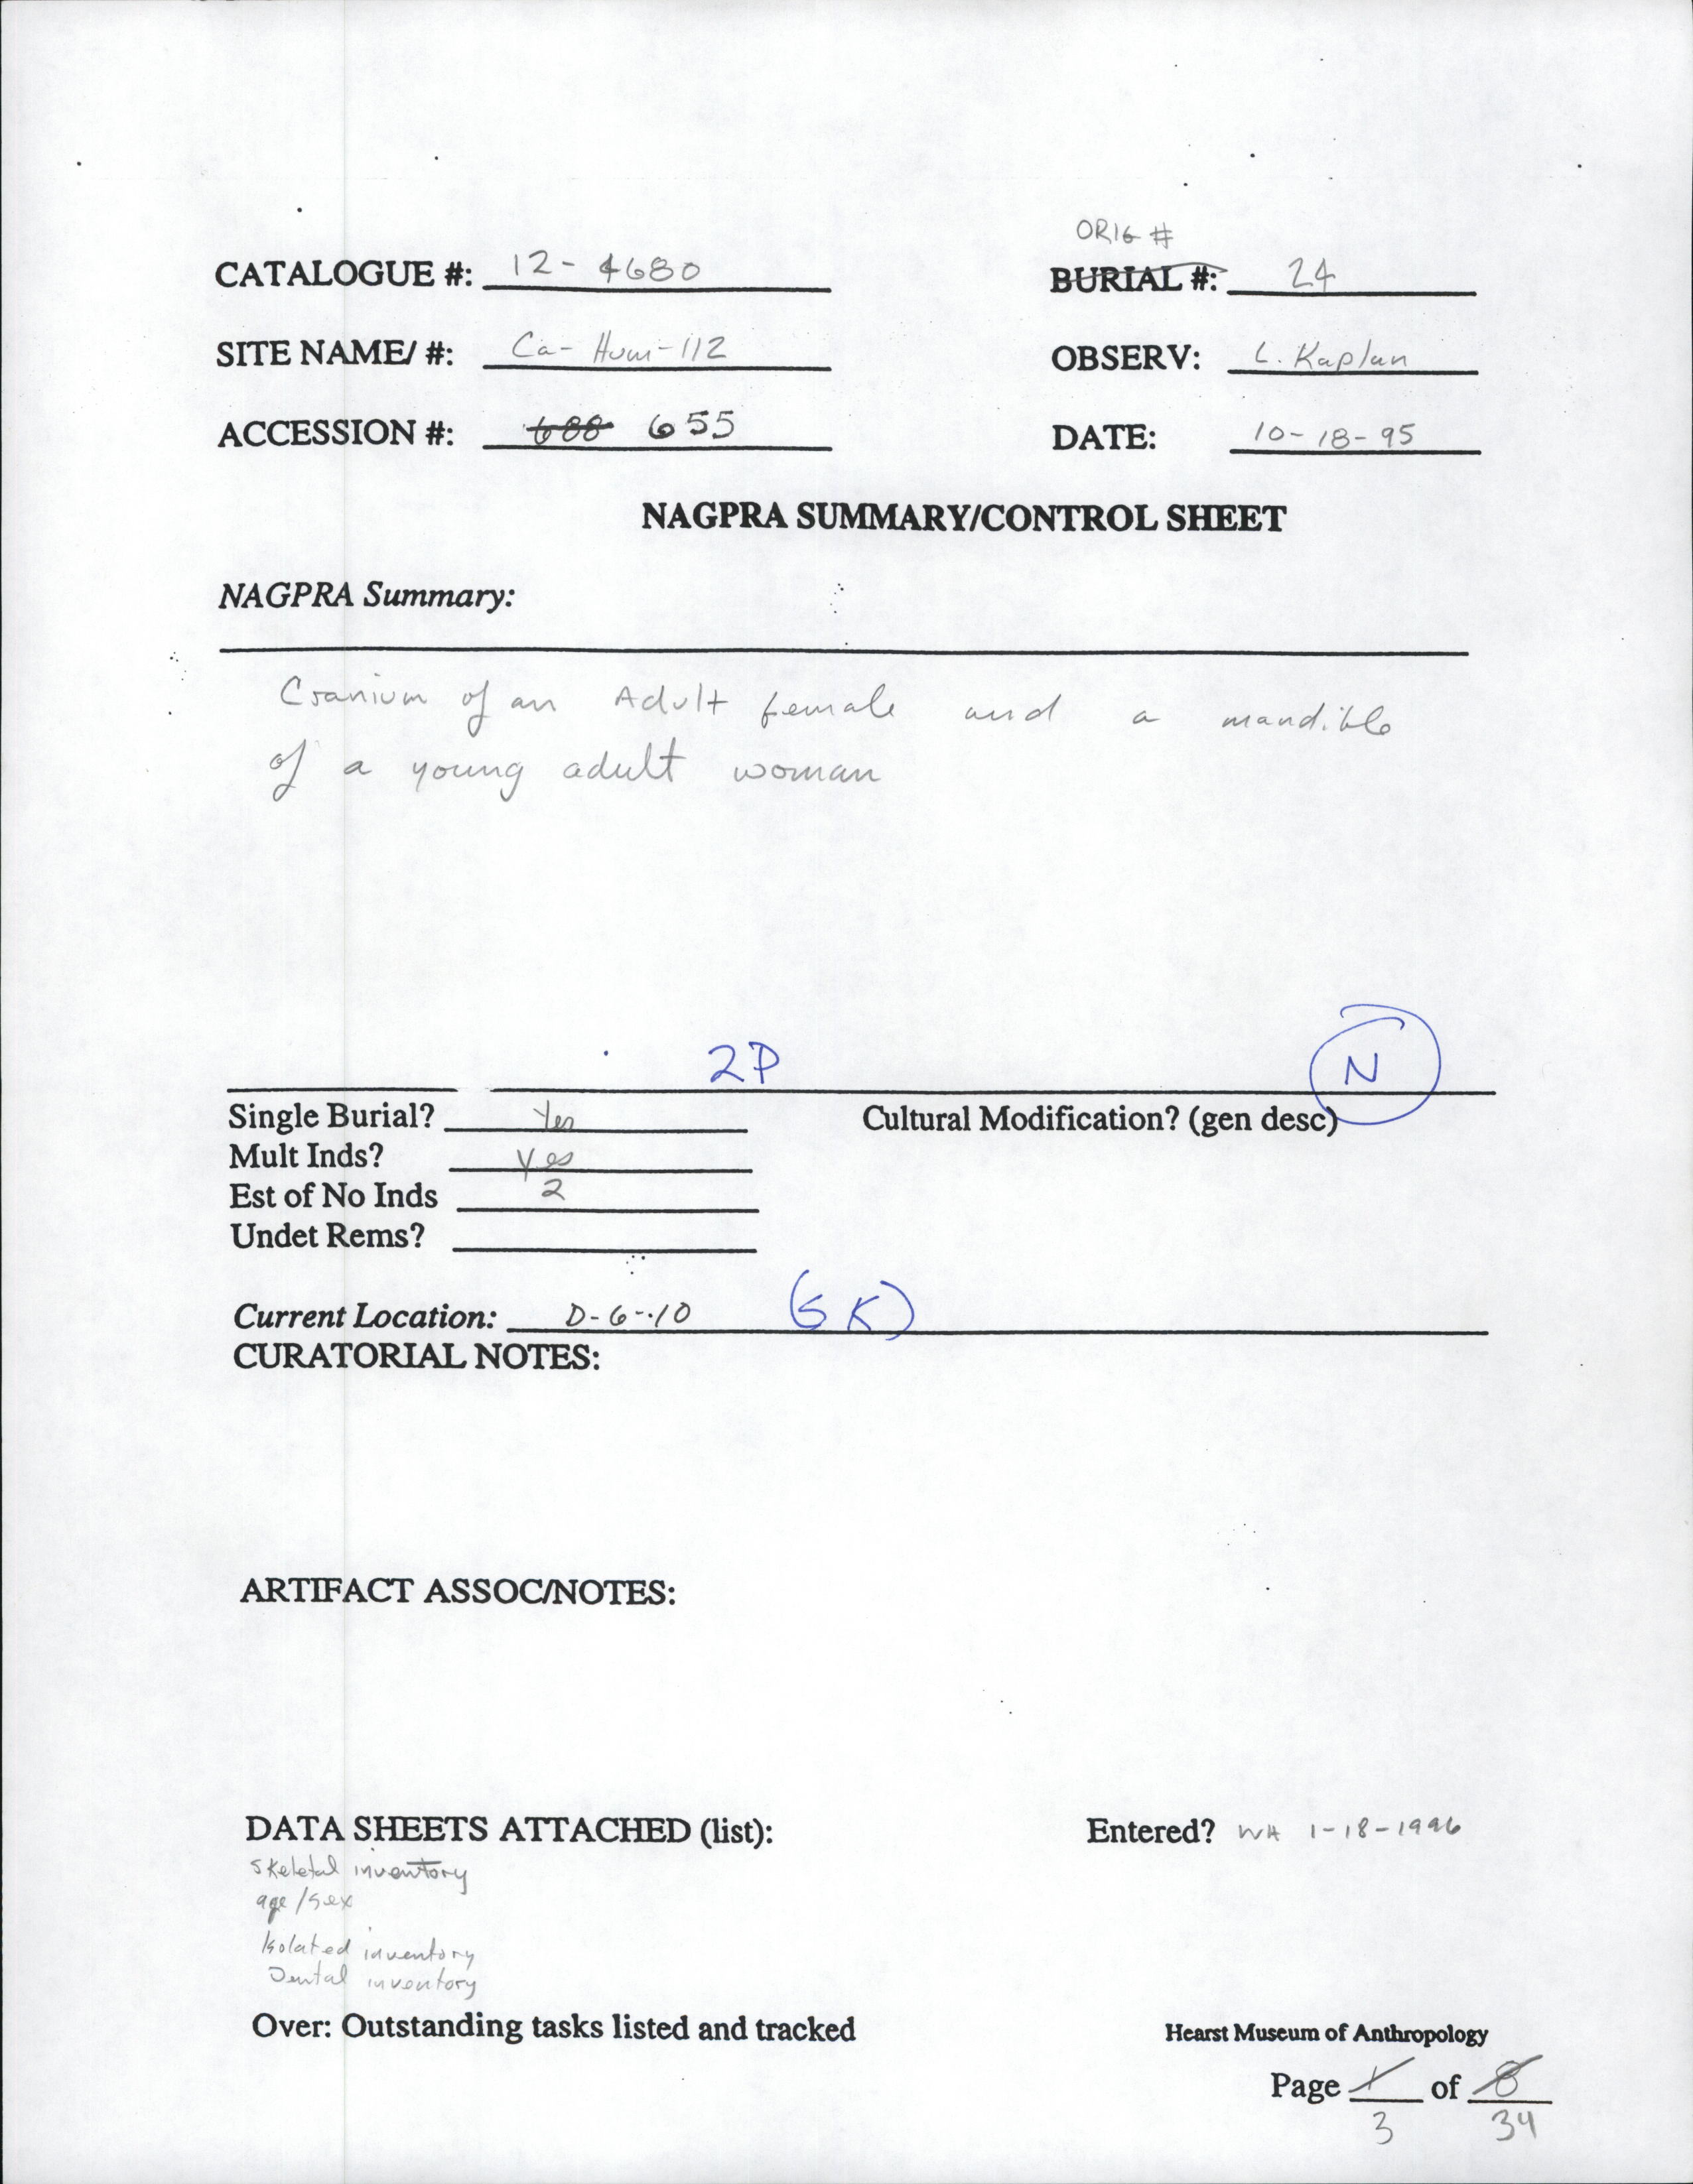 ORIG #
CATALOGUE #: 12-4680 BURIAL #: 24
SITE NAME/ #: Ca-Hum-112 OBSERV: L. Kaplan
ACCESSION #: 688 655 DATE: 10-18-95
NAGPRA SUMMARY/CONTROL SHEET
NAGPRA Summary:
Cranium of an Adult female and a mandible
of a young adult woman
2P N
Single Burial? Yes Cultural Modification? (gen desc)
Mult Inds? Yes
Est of No Inds 2
Undet Rems?
Current Location: D-6-10 (SK)
CURATORIAL NOTES:
ARTIFACT ASSOC/NOTES:
DATA SHEETS ATTACHED (list): Entered? WH 1-18-1996
Skeletal inventory
age/sex
Isolated inventory
Dental inventory
Over: Outstanding tasks listed and tracked Hearst Museum of Anthropology
Page 1 of 8
3 34